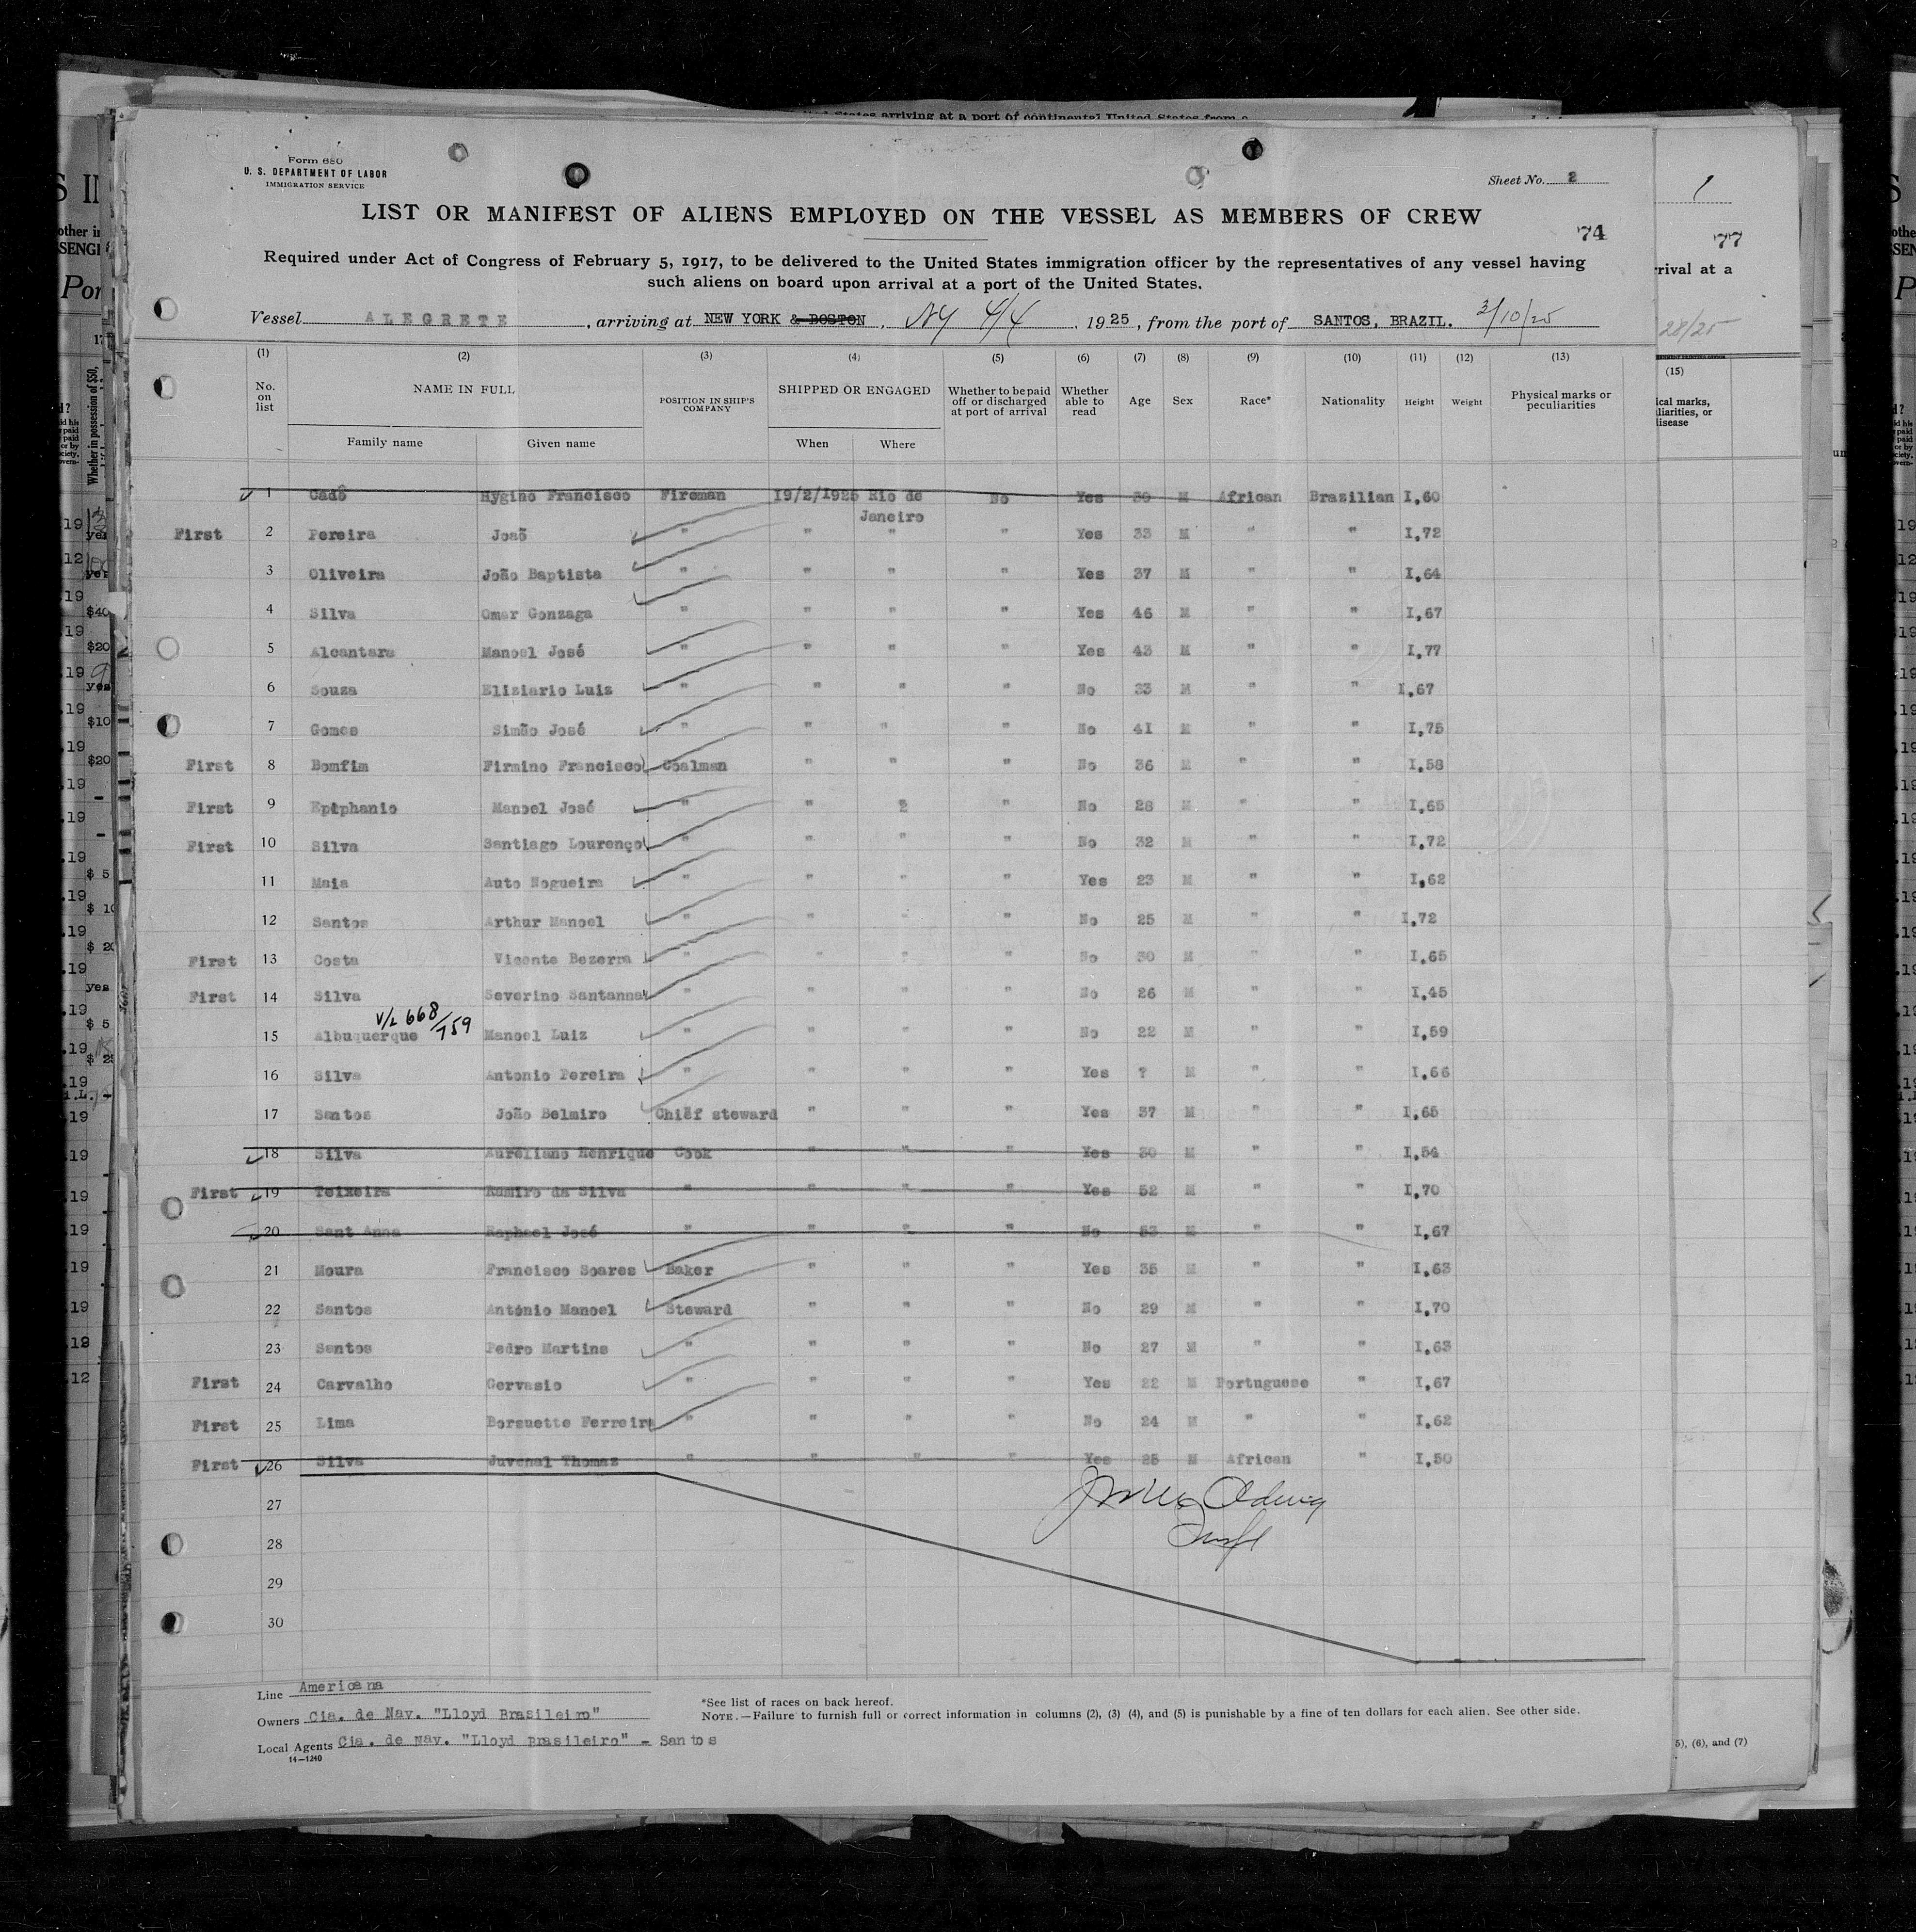 Form 680
U. S. DEPARTMENT OF LABOR
IMMIGRATION SERVICE
Sheet No. 2
LIST OR MANIFEST OF ALIENS EMPLOYED ON THE VESSEL AS MEMBERS OF CREW
74
Required under Act of Congress of February 5, 1917, to be delivered to the United States immigration officer by the representatives of any vessel having
such aliens on board upon arrival at a port of the United States.
Vessel ALEGRETE, arriving at NEW YORK & BOSTON, NY 4/4, 1925, from the port of SANTOS, BRAZIL. 3/10/25
(1) (2) (3) (4) (5) (6) (7) (8) (9) (10) (11) (12) (13)
No. on list NAME IN FULL POSITION IN SHIP'S COMPANY SHIPPED OR ENGAGED Whether to be paid off or discharged at port of arrival Whether able to read Age Sex Race* Nationality Height Weight Physical marks or peculiarities
Family name Given name When Where
1 Cadô Hygino Francisco Fireman 19/2/1925 Rio de Janeiro No Yes 30 M African Brazilian I,60
First 2 Pereira Joaõ " " " " Yes 33 M " " I,72
3 Oliveira João Baptista " " " " Yes 37 M " " I,64
4 Silva Omar Gonzaga " " " " Yes 46 M " " I,67
5 Alcantara Manoel José " " " " Yes 43 M " " I,77
6 Souza Eliziario Luiz " " " " No 33 M " " I,67
7 Gomes Simão José " " " " No 41 M " " I,75
First 8 Bomfim Firmino Francisco Coalman " " " No 36 M " " I,58
First 9 Epiphanio Manoel José " " 2 " No 28 M " " I,65
First 10 Silva Santiago Lourenço " " " " No 32 M " " I,72
11 Maia Auto Nogueira " " " " Yes 23 M " " I,62
12 Santos Arthur Manoel " " " " No 25 M " " I,72
First 13 Costa Vicente Bezerra " " " " No 30 M " " I,65
First 14 Silva Severino Santanna " " " " No 26 M " " I,45
V/L 668/759
15 Albuquerque Manoel Luiz " " " " No 22 M " " I,59
16 Silva Antonio Pereira " " " " Yes ? M " " I,66
17 Santos João Belmiro Chief steward " " " Yes 37 M " " I,65
18 Silva Aureliano Henrique Cook " " " Yes 30 M " " I,54
First 19 Teixeira Ramiro da Silva " " " " Yes 52 M " " I,70
20 Sant Anna Raphael José " " " " No 53 M " " I,67
21 Moura Francisco Soares Baker " " " Yes 35 M " " I,63
22 Santos António Manoel Steward " " " No 29 M " " I,70
23 Santos Pedro Martins " " " " No 27 M " " I,63
First 24 Carvalho Gervasio " " " " Yes 22 M Portuguese " I,67
First 25 Lima Borsuette Ferreira " " " " No 24 M " " I,62
First 26 Silva Juvenal Thomaz " " " " Yes 25 M African " I,50
27
28
29
30
Line Americana
Owners Cia. de Nav. "Lloyd Brasileiro"
Local Agents Cia. de Nav. "Lloyd Brasileiro" - Santos
14—1240
*See list of races on back hereof.
NOTE.—Failure to furnish full or correct information in columns (2), (3) (4), and (5) is punishable by a fine of ten dollars for each alien. See other side.
77
rrival at a
28/25
(15)
5), (6), and (7)